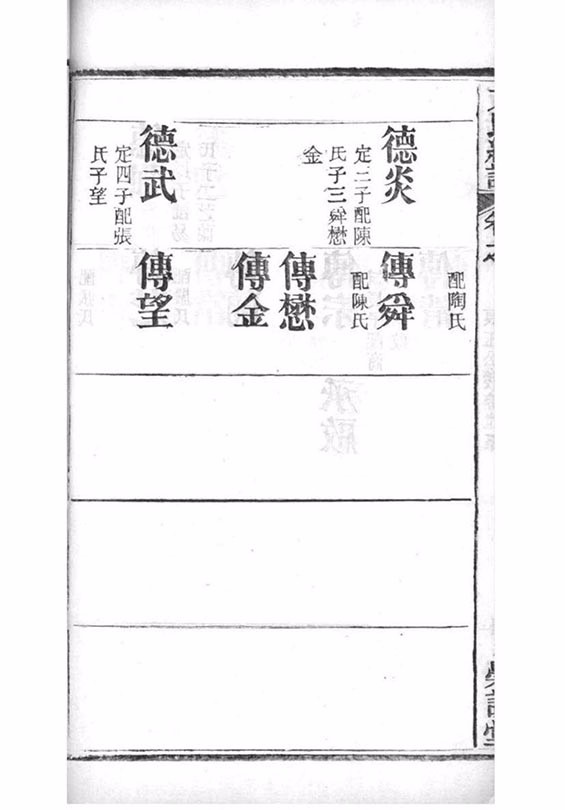 德炎
定三子配陳
氏子三舜懋
金
德武
定四子配張
氏子望
配陶氏
傳舜
配陳氏
傳懋
傳金
傳望